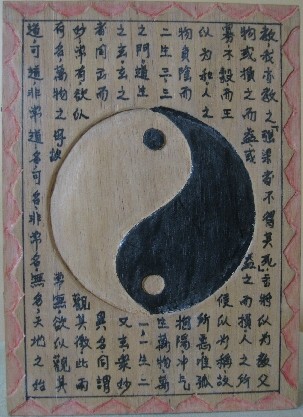 道,可道,非常道,名,可名,非常名,無名,天地之始
有名,萬物之母,故常無欲以觀其
妙,常有欲以觀其徼,此兩
者同出而異名,同謂
之玄,玄之又玄,眾妙
之門,道生一,一生二
二生三,三生萬物,萬
物負陰而抱陽,沖气
以為和,人之所惡,唯孤
寡不穀,而王侯以為稱,故
物或損之而益,或益之而損,人之所
教,我亦教之,「強梁者不得其死」,吾將以為教父